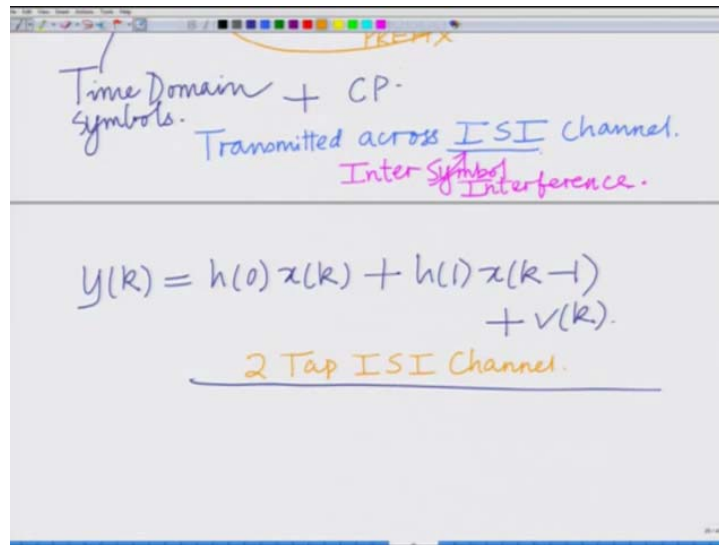 PREFIX
Time Domain + CP.
Symbols.
Transmitted across ISI Channel.
Inter Symbol
Interference.
y(k) = h(0) x(k) + h(1) x(k-1)
+ v(k).
2 Tap ISI Channel.